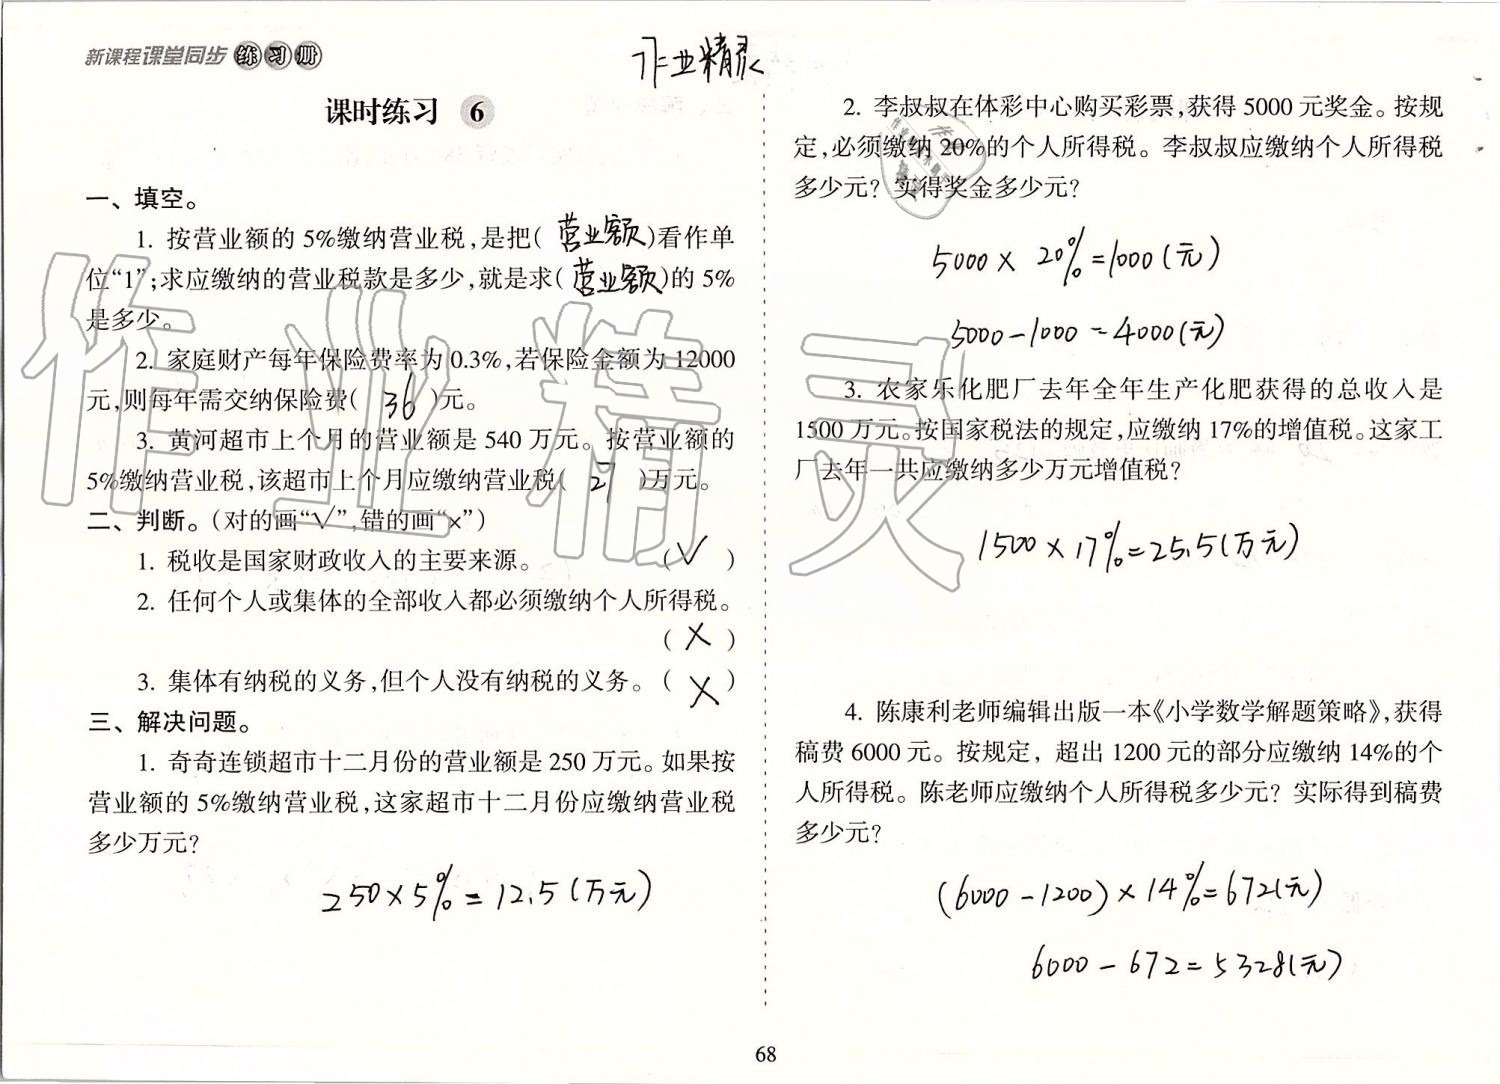 新课程课堂同步练习册
作业精灵
课时练习 6
一、填空。
1. 按营业额的5%缴纳营业税,是把( 营业额 )看作单
位“1”;求应缴纳的营业税款是多少,就是求( 营业额 )的5%
是多少。
2. 家庭财产每年保险费率为0.3%,若保险金额为12000
元,则每年需交纳保险费( 36 )元。
3. 黄河超市上个月的营业额是540万元。按营业额的
5%缴纳营业税,该超市上个月应缴纳营业税( 27 )万元。
二、判断。(对的画“√”,错的画“×”)
1. 税收是国家财政收入的主要来源。 ( √ )
2. 任何个人或集体的全部收入都必须缴纳个人所得税。
( × )
3. 集体有纳税的义务,但个人没有纳税的义务。 ( × )
三、解决问题。
1. 奇奇连锁超市十二月份的营业额是250万元。如果按
营业额的5%缴纳营业税,这家超市十二月份应缴纳营业税
多少万元?
250×5%=12.5(万元)
2. 李叔叔在体彩中心购买彩票,获得5000元奖金。按规
定,必须缴纳20%的个人所得税。李叔叔应缴纳个人所得税
多少元? 实得奖金多少元?
5000× 20%=1000(元)
5000-1000=4000(元)
3. 农家乐化肥厂去年全年生产化肥获得的总收入是
1500万元。按国家税法的规定,应缴纳17%的增值税。这家工
厂去年一共应缴纳多少万元增值税?
1500×17%=25.5(万元)
4. 陈康利老师编辑出版一本《小学数学解题策略》,获得
稿费6000元。按规定, 超出1200元的部分应缴纳14%的个
人所得税。陈老师应缴纳个人所得税多少元? 实际得到稿费
多少元?
(6000-1200)×14%=672(元)
6000-672=5328(元)
68
作业精灵